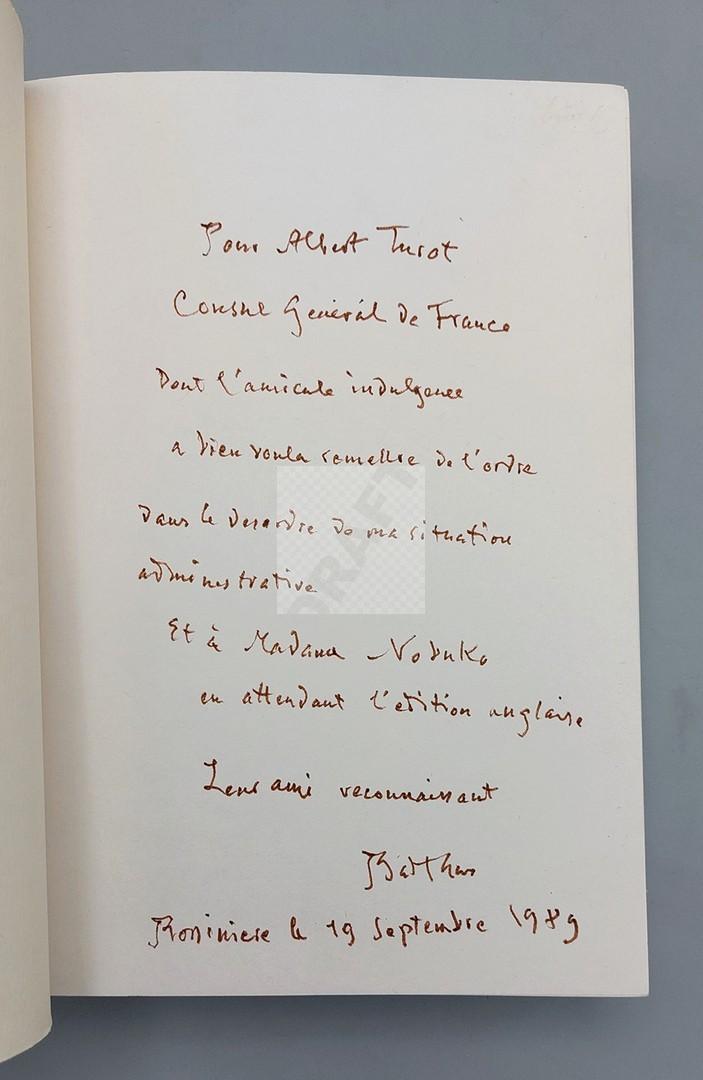 Pour Albert Turot
Consul Général de France
Dont l'amicale indulgence
a bien voulu remettre de l'ordre
dans le desordre de ma situation
administrative
Et à Madame Nobuko
en attendant l'edition anglaise
Leur ami reconnaissant
Balthus
Rossiniere le 19 Septembre 1989
DRAFT